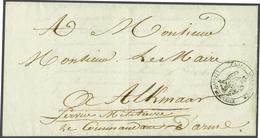 A Monsieur
Monsieur Le Maire
a Alkmaar
Service Militaire
Le Commandant d'armes